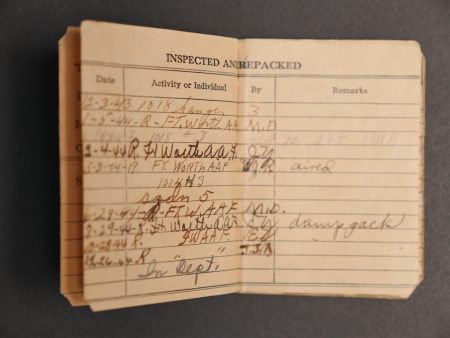 INSPECTED AND REPACKED
Date Activity or Individual By Remarks
12-3-43 1018 3
1-5-44-R-FT. WORTH AAF M.D.
3-4-44 R. Ft Worth A A F.
5-3-44-R FT. WORTH AAF aired
1018 H3
sqdn 5
6-28-44-R-FT.W. AAF M.D.
8-29-44-R. Ft. Worth A A F damp pack
10-28-44 R. FWAAF
12-26-44 R " " J.J.A
In Dept.